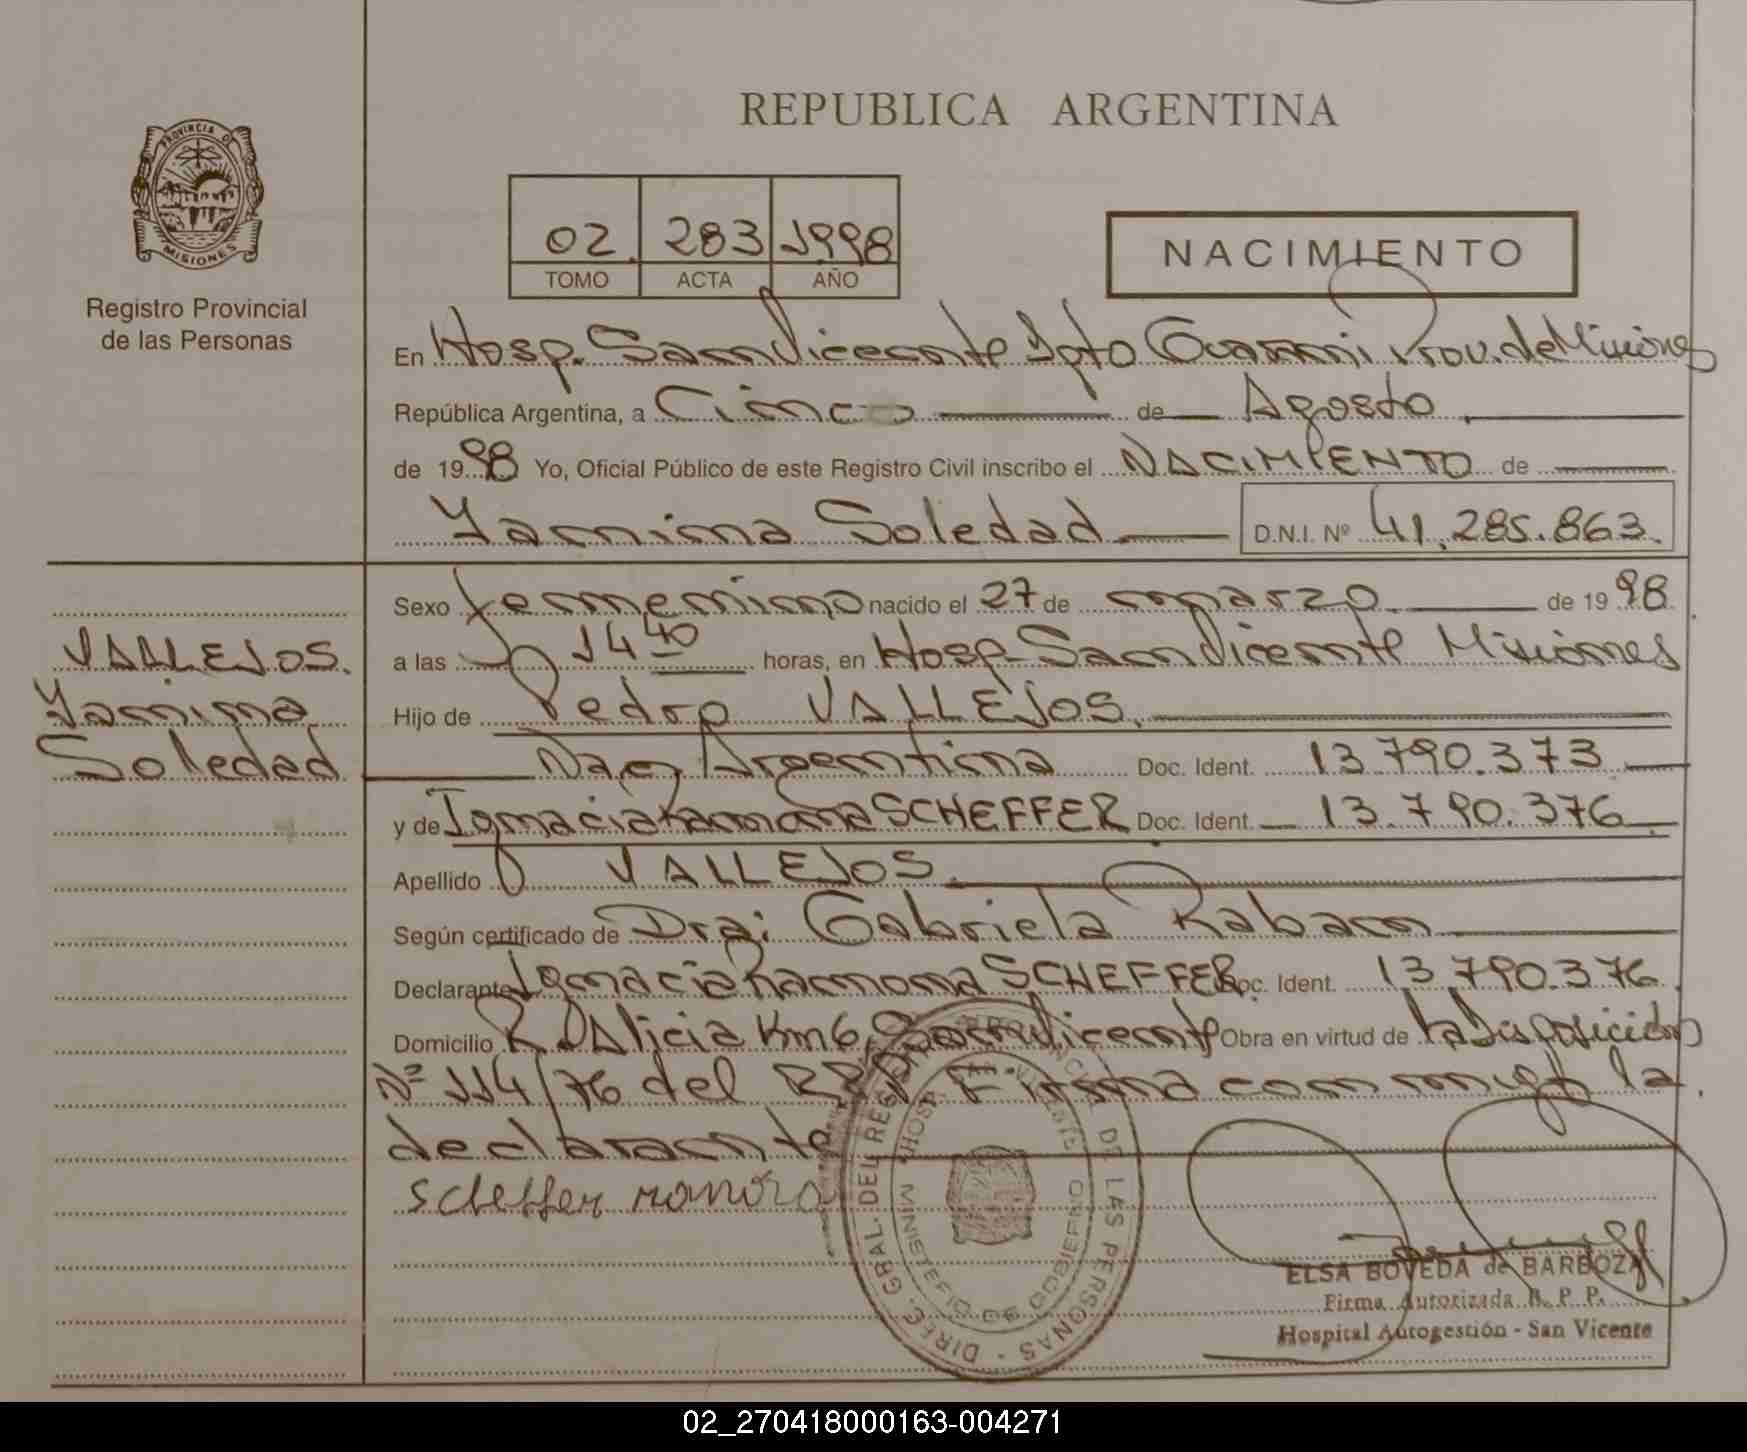 REPUBLICA ARGENTINA
PROVINCIA D
MISIONES
Registro Provincial
de las Personas
02. 283 1998
TOMO ACTA AÑO
NACIMIENTO
En Hosp. San Vicente Dpto Guarani Prov. de Misiones
República Argentina, a Cinco de Agosto
de 1998 Yo, Oficial Público de este Registro Civil inscribo el NACIMIENTO de
Yamina Soledad D.N.I. Nº 41.285.863.
Sexo femenino nacido el 27 de marzo de 1998
a las 14 40 horas, en Hosp San Vicente Misiones
Hijo de Pedro VALLEJOS.
Nac Argentina Doc. Ident. 13.790.373
y de Ignacia Ramona SCHEFFER Doc. Ident. 13.790.376
Apellido VALLEJOS
Según certificado de Dra: Gabriela Raban
Declarante Ignacia Ramona SCHEFFER Doc. Ident. 13.790.376
Domicilio Alicia Km 6, San Vicente Obra en virtud de la Disposición
Nº 114/76 del Firma conmigo la
declarante
Scheffer ramona
VALLEJOS.
Yamina
Soledad
DIREC. GRAL. DEL REG DE LAS PERSONAS
HOSP. SAN VICENTE
MINISTERIO DE GOBIERNO
ELSA BOVEDA de BARBOZA
Firma Autorizada R. P. P.
Hospital Autogestión - San Vicente
02_270418000163-004271